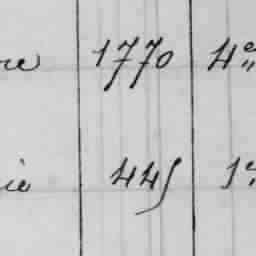 re 1770 4e
ie 445 1e